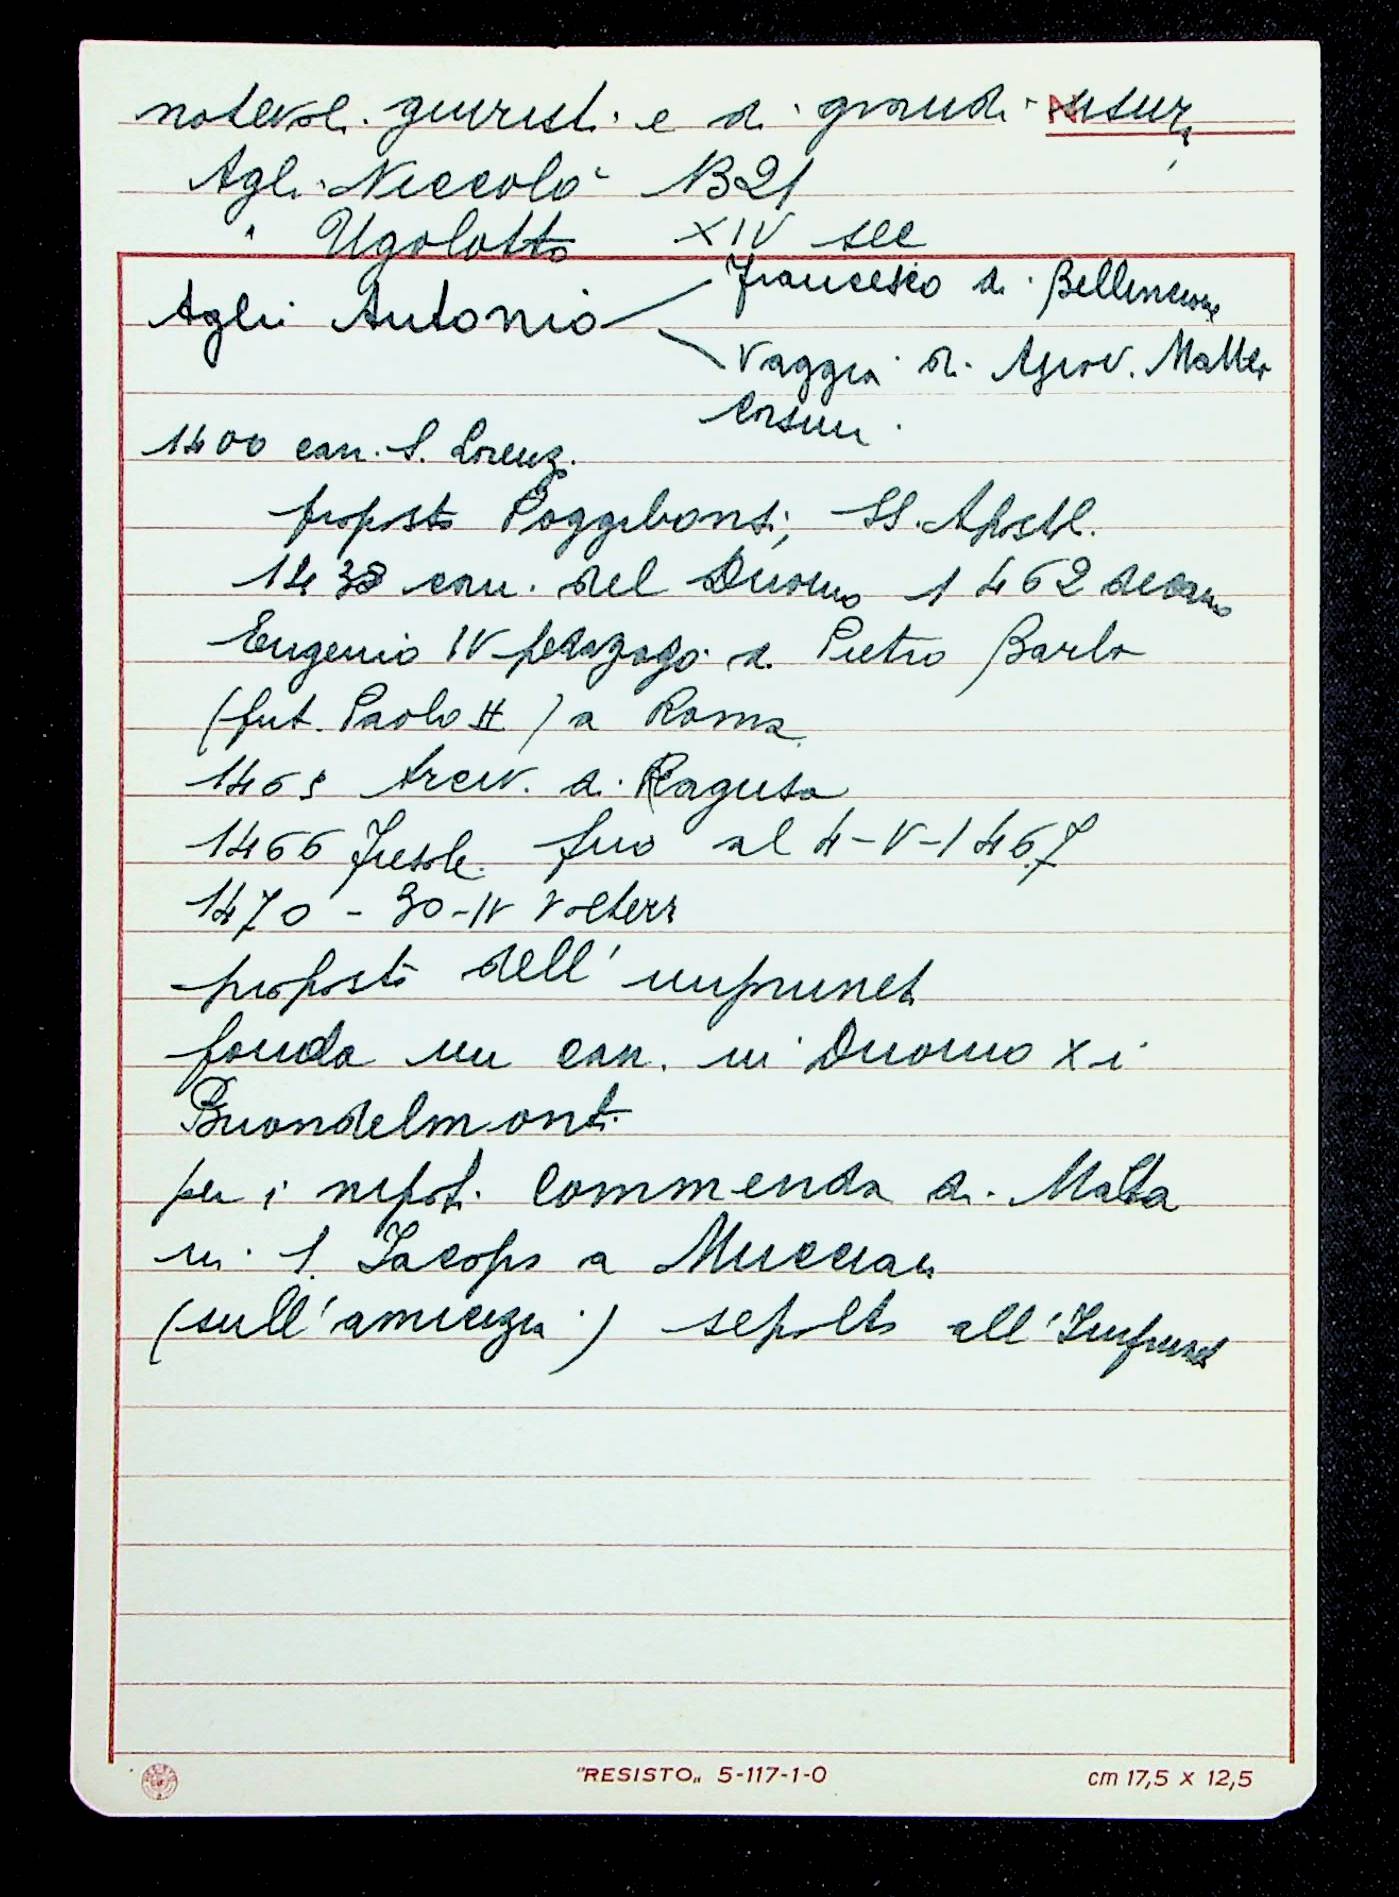 notevoli giuristi e di grandi usura
N
Agli Niccolò 1321
" Ugolotto XIV sec
Agli Antonio
Francesco di Bellincione
Vaggia di Agnov. Matteo
Corsini.
1400 can. S. Lorenz.
proposto Poggibonsi, SS. Apostl.
1438 can. del Duomo 1462 decano
Eugenio IV pedagogo di Pietro Barbo
(fut. Paolo II) a Roma
1465 Arciv. di Ragusa
1466 Fiesole. fino al 4-V-1467
1470 - 30-IV Volterr
proposto dell'imprunet
fonda un can. in Duomo x i
Buondelmonti
per i nepoti Commenda di Malta
in S. Jacopo a Muccian
(sull'amicizia) sepolto all'Imprunet
"RESISTO„ 5-117-1-0
cm 17,5 x 12,5